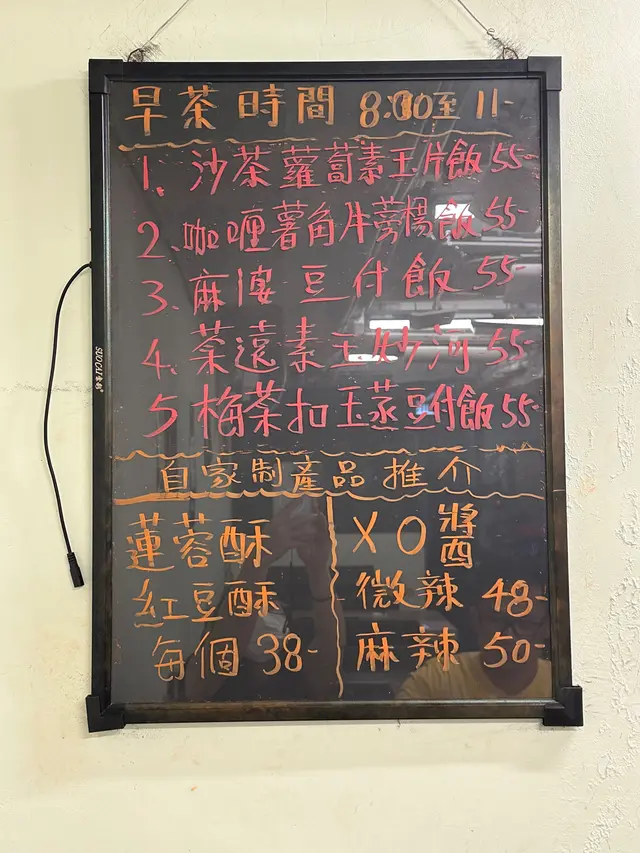 早茶時間 8:00至11-
1. 沙茶蘿蔔素玉片飯 55-
2. 咖喱薯角牛蒡楊飯 55-
3. 麻婆豆付飯 55-
4. 茶遠素玉炒河 55-
5 梅茶扣玉蒸豆付飯 55-
自家制產品推介
蓮蓉酥
紅豆酥
每個 38-
XO醬
微辣 48-
麻辣 50-